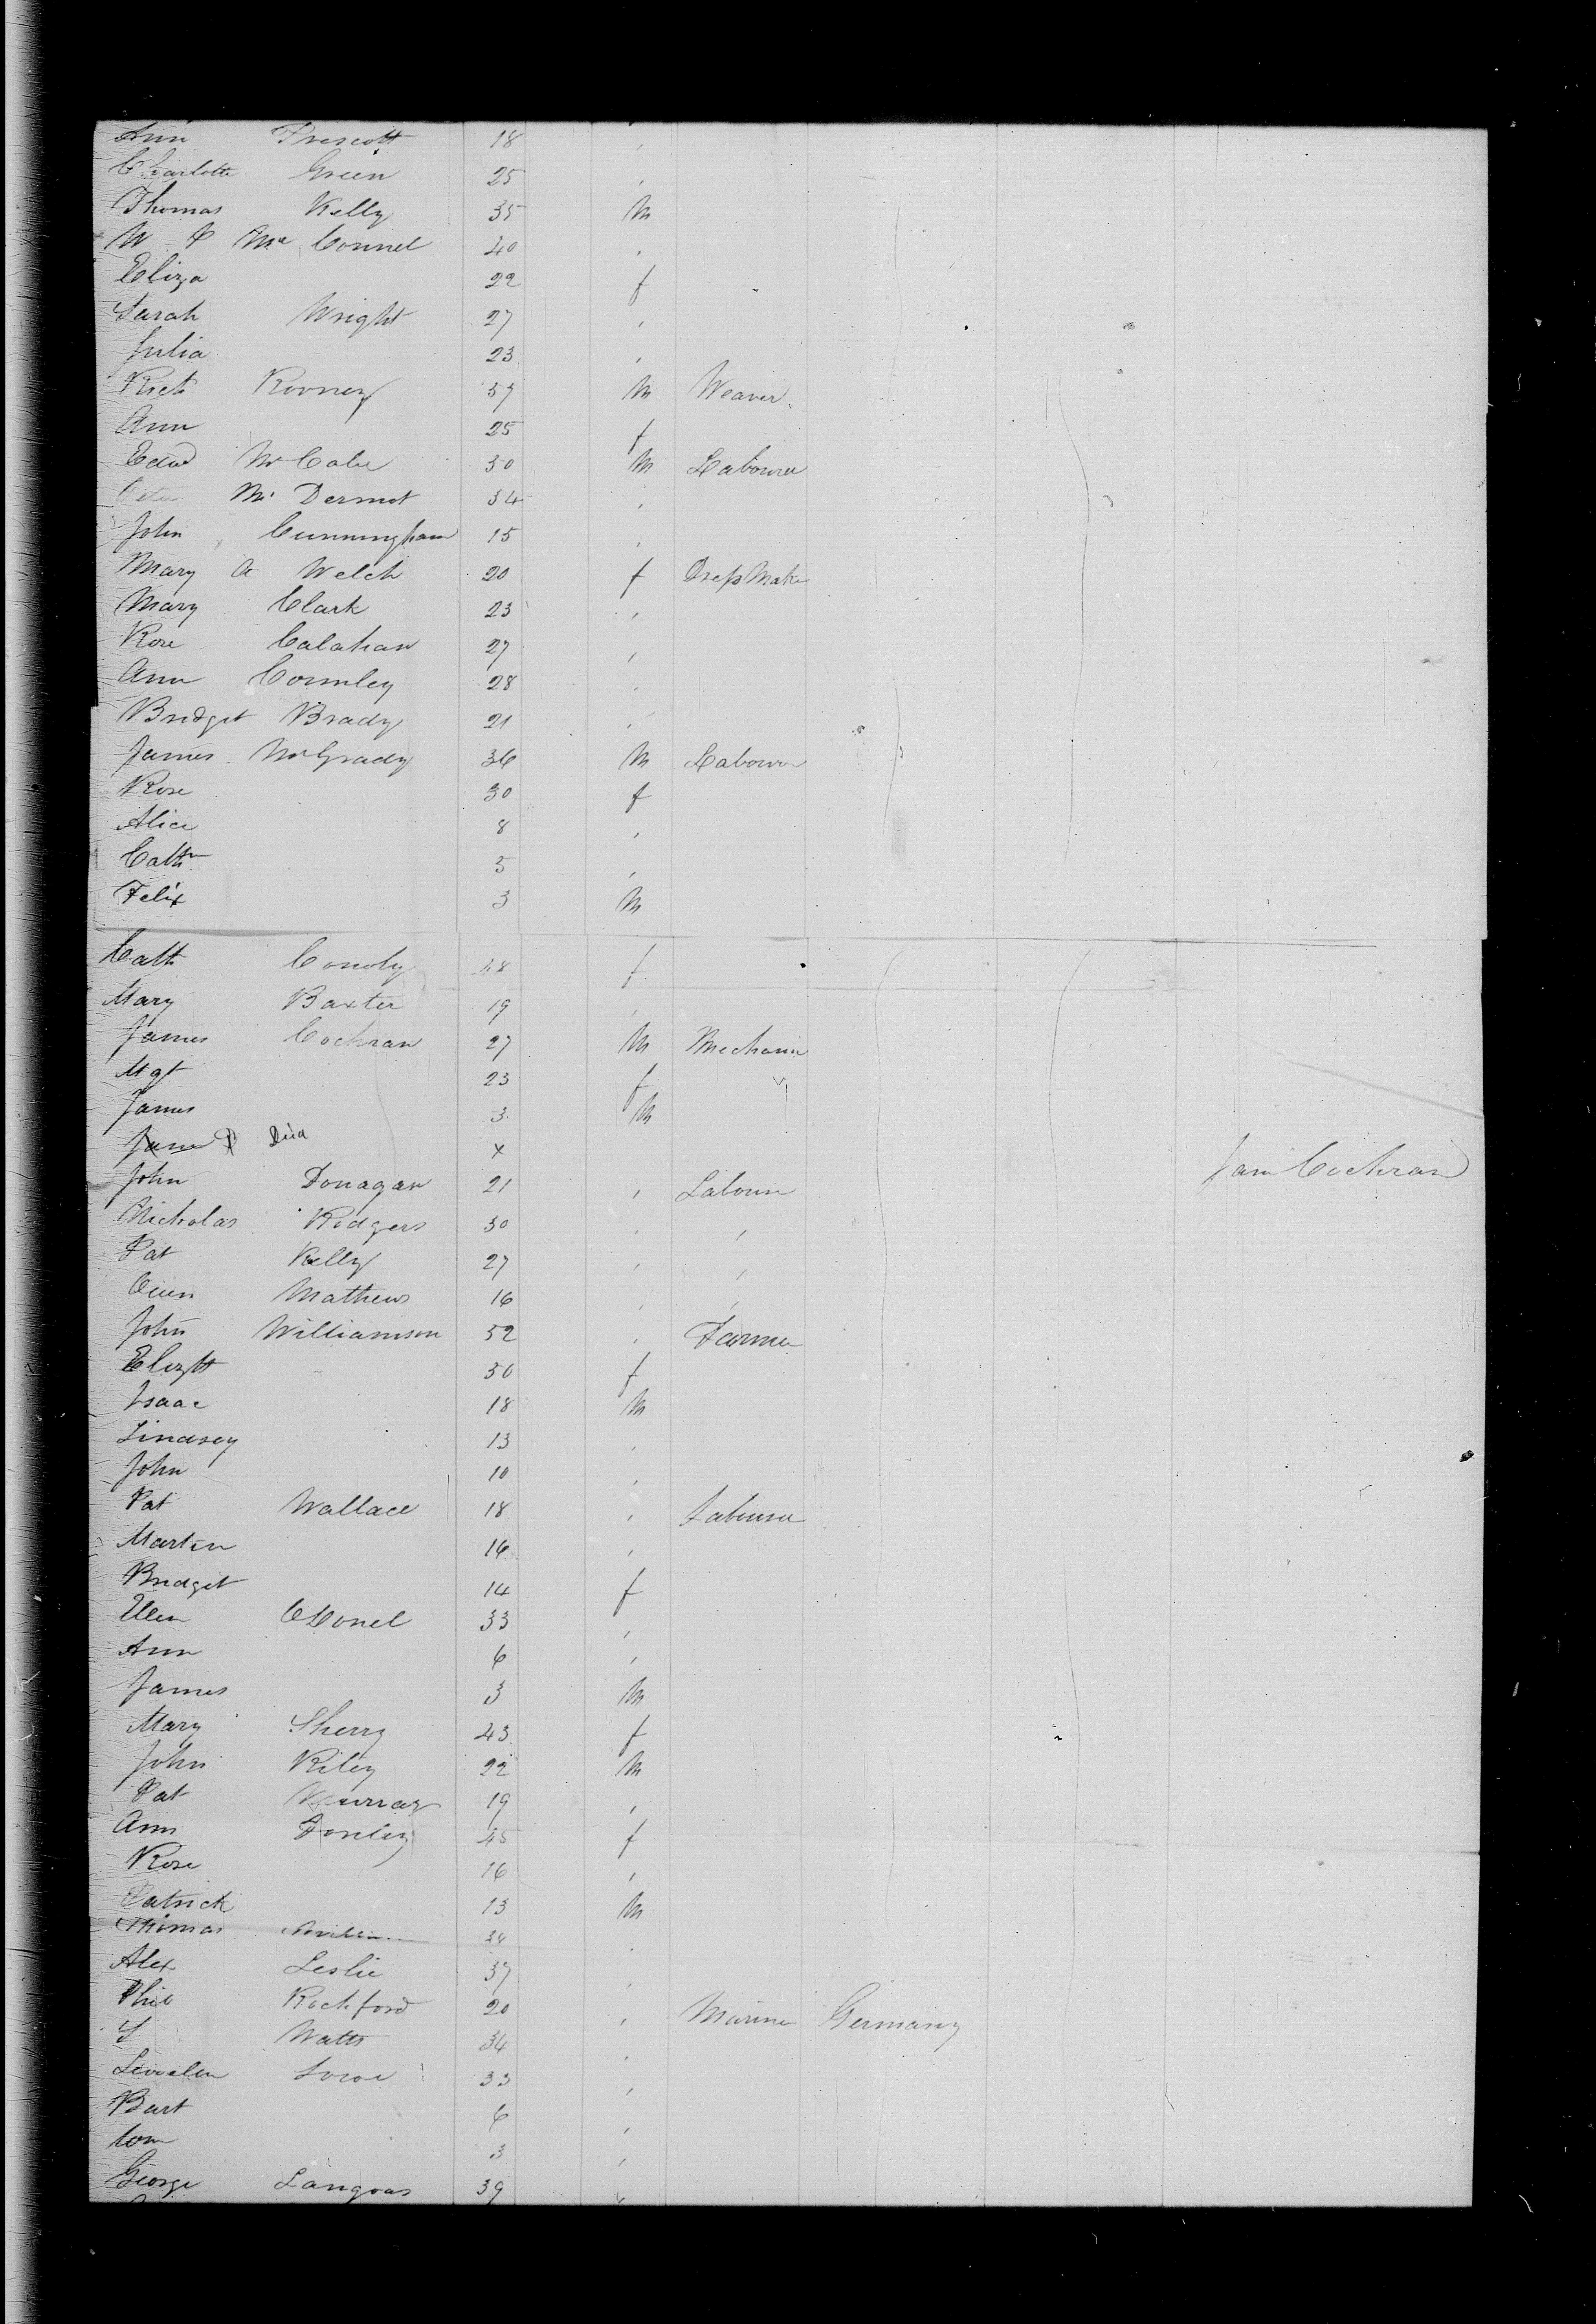 Ann Prescott 18 "
Charlotte Green 25 "
Thomas Kelly 35 M
W Mc Connel 40 "
Eliza 22 f
Sarah Wright 27 "
Julia 23 "
Rich Rooney 37 M Weaver
Ann 25 f
Edwd McCabe 30 M Labourer
Peter Mc Dermot 34 "
John Cunningham 15 "
Mary A Welch 20 f Dress Maker
Mary Clark 23 "
Rose Calahan 27 "
Ann Cormley 28 "
Bridget Brady 21 "
James McGrady 36 M Labourer
Rose 30 f
Alice 8 "
Cathn 5 "
Felix 3 M
Cath 48 f
Mary Baxter 19 "
James Cochran 27 M Mechanic
Mgt 23 f
James 3 M
Jane Died x Jam Cochran
John Donagan 21 " Labourer
Nicholas Rodgers 30 " "
Pat Kelly 27 " "
Owen Mathews 16 " "
John Williamson 52 " Farmer
Elizth 50 f
Isaac 18 M
Lindsey 13 "
John 10 "
Pat Wallace 18 " Labourer
Martin 16 "
Bridget 14 f
Ellen 33 "
Ann 6 "
James 3 M
Mary Sherry 43 f
John Riley 22 M
Pat Murray 19 "
Ann Donley 45 f
Rose 16 "
Patrick 13 M
Thomas 38 "
Alex Leslie 37 "
Phil Rochford 20 " Mariner Germany
S Watts 34 "
Lewelen 33 "
Bart 6 "
Tom 3 "
George Langoas 39 "